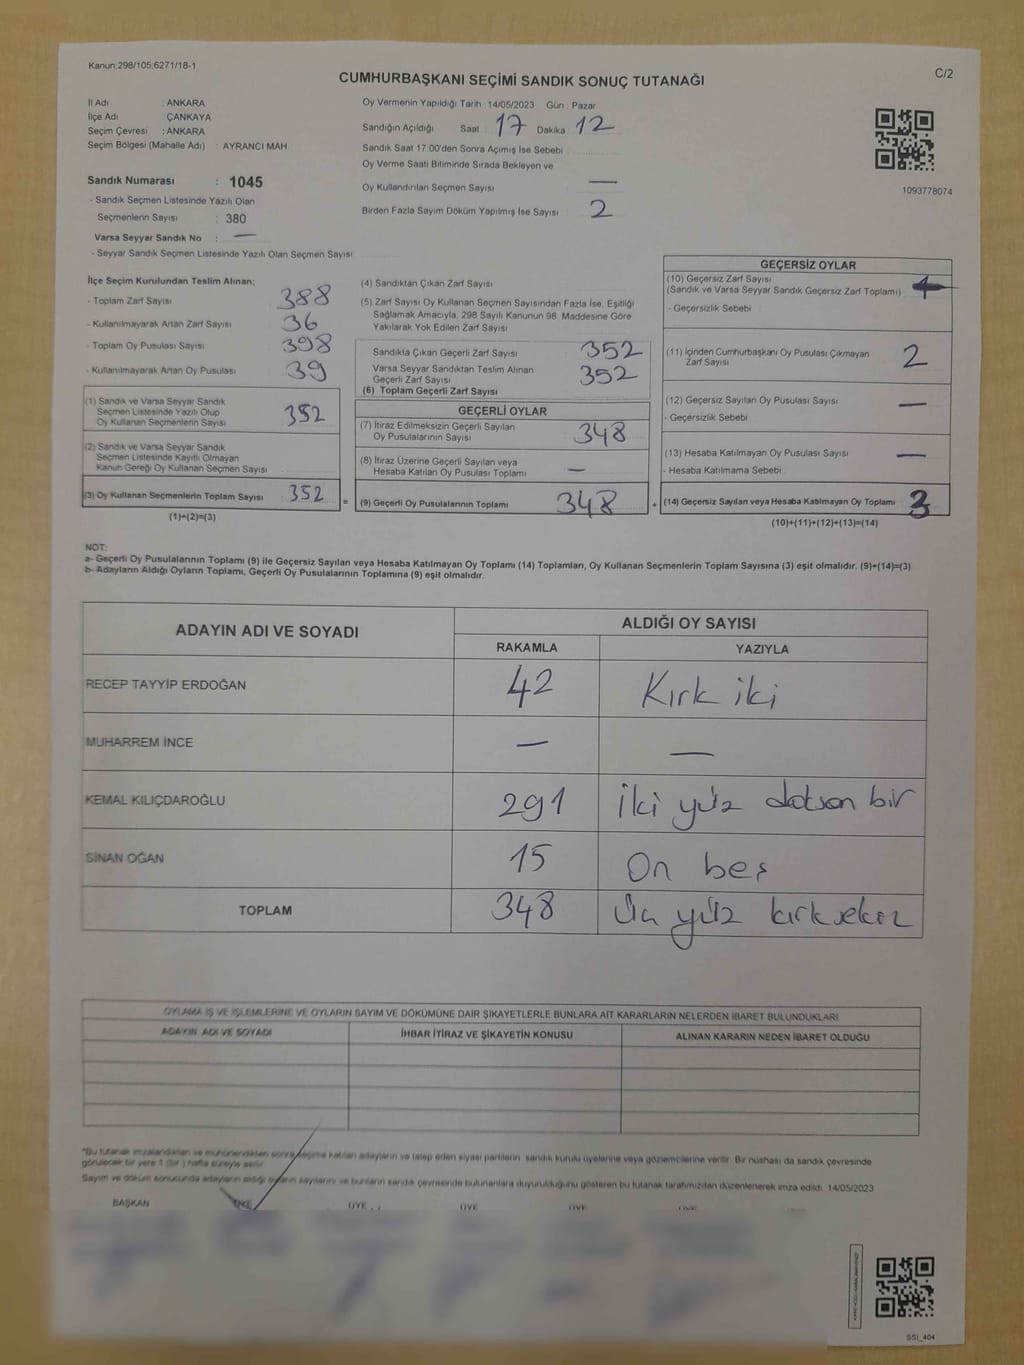 Kanun:298/105;6271/18-1
C/2
CUMHURBAŞKANI SEÇİMİ SANDIK SONUÇ TUTANAĞI
İl Adı : ANKARA
İlçe Adı : ÇANKAYA
Seçim Çevresi : ANKARA
Seçim Bölgesi (Mahalle Adı) : AYRANCI MAH.
Sandık Numarası : 1045
- Sandık Seçmen Listesinde Yazılı Olan
Seçmenlerin Sayısı : 380
Varsa Seyyar Sandık No : —
- Seyyar Sandık Seçmen Listesinde Yazılı Olan Seçmen Sayısı
Oy Vermenin Yapıldığı Tarih :14/05/2023 Gün : Pazar
Sandığın Açıldığı Saat : 17 Dakika : 12
Sandık Saat 17:00'den Sonra Açımış İse Sebebi
Oy Verme Saati Bitiminde Sırada Bekleyen ve
Oy Kullandırılan Seçmen Sayısı —
Birden Fazla Sayım Döküm Yapılmış İse Sayısı 2
1093778074
İlçe Seçim Kurulundan Teslim Alınan;
- Toplam Zarf Sayısı 388
- Kullanılmayarak Artan Zarf Sayısı 36
- Toplam Oy Pusulası Sayısı 398
- Kullanılmayarak Artan Oy Pusulası 39
(1) Sandık ve Varsa Seyyar Sandık
Seçmen Listesinde Yazılı Olup
Oy Kullanan Seçmenlerin Sayısı 352
(2) Sandık ve Varsa Seyyar Sandık
Seçmen Listesinde Kayıtlı Olmayan
Kanun Gereği Oy Kullanan Seçmen Sayısı
(3) Oy Kullanan Seçmenlerin Toplam Sayısı 352
(1)+(2)=(3)
=
(4) Sandıktan Çıkan Zarf Sayısı
(5) Zarf Sayısı Oy Kullanan Seçmen Sayısından Fazla İse, Eşitliği
Sağlamak Amacıyla, 298 Sayılı Kanunun 98. Maddesine Göre
Yakılarak Yok Edilen Zarf Sayısı
Sandıkta Çıkan Geçerli Zarf Sayısı 352
Varsa Seyyar Sandıktan Teslim Alınan
Geçerli Zarf Sayısı 352
(6) Toplam Geçerli Zarf Sayısı
GEÇERLİ OYLAR
(7) İtiraz Edilmeksizin Geçerli Sayılan
Oy Pusulalarının Sayısı 348
(8) İtiraz Üzerine Geçerli Sayılan veya
Hesaba Katılan Oy Pusulası Toplamı —
(9) Geçerli Oy Pusulalarının Toplamı 348
+
GEÇERSİZ OYLAR
(10) Geçersiz Zarf Sayısı
(Sandık ve Varsa Seyyar Sandık Geçersiz Zarf Toplamı)
- Geçersizlik Sebebi
(11) İçinden Cumhurbaşkanı Oy Pusulası Çıkmayan
Zarf Sayısı 2
(12) Geçersiz Sayılan Oy Pusulası Sayısı —
- Geçersizlik Sebebi
(13) Hesaba Katılmayan Oy Pusulası Sayısı —
- Hesaba Katılmama Sebebi
(14) Geçersiz Sayılan veya Hesaba Katılmayan Oy Toplamı 3
(10)+(11)+(12)+(13)=(14)
NOT:
a- Geçerli Oy Pusulalarının Toplamı (9) ile Geçersiz Sayılan veya Hesaba Katılmayan Oy Toplamı (14) Toplamları, Oy Kullanan Seçmenlerin Toplam Sayısına (3) eşit olmalıdır. (9)+(14)=(3)
b- Adayların Aldığı Oyların Toplamı, Geçerli Oy Pusulalarının Toplamına (9) eşit olmalıdır.
ADAYIN ADI VE SOYADI
ALDIĞI OY SAYISI
RAKAMLA YAZIYLA
RECEP TAYYİP ERDOĞAN 42 Kırk iki
MUHARREM İNCE — —
KEMAL KILIÇDAROĞLU 291 İki yüz doksan bir
SİNAN OĞAN 15 On beş
TOPLAM 348 Üç yüz kırk sekiz
OYLAMA İŞ VE İŞLEMLERİNE VE OYLARIN SAYIM VE DÖKÜMÜNE DAİR ŞİKAYETLERLE BUNLARA AİT KARARLARIN NELERDEN İBARET BULUNDUKLARI
ADAYIN ADI VE SOYADI İHBAR İTİRAZ VE ŞİKAYETİN KONUSU ALINAN KARARIN NEDEN İBARET OLDUĞU
*Bu tutanak imzalandıktan ve mühürlendikten sonra seçime katılan adayların ve talep eden siyasi partilerin sandık kurulu üyelerine veya gözlemcilerine verilir. Bir nüshası da sandık çevresinde
görülecek bir yere 1 (bir) hafta süreyle asılır.
Sayım ve döküm sonucunda adayların aldığı oyların sayılarını ve bunların sandık çevresinde bulunanlara duyurulduğunu gösteren bu tutanak tarafımızdan düzenlenerek imza edildi. 14/05/2023
BAŞKAN ÜYE ÜYE ÜYE ÜYE ÜYE
SSI_404